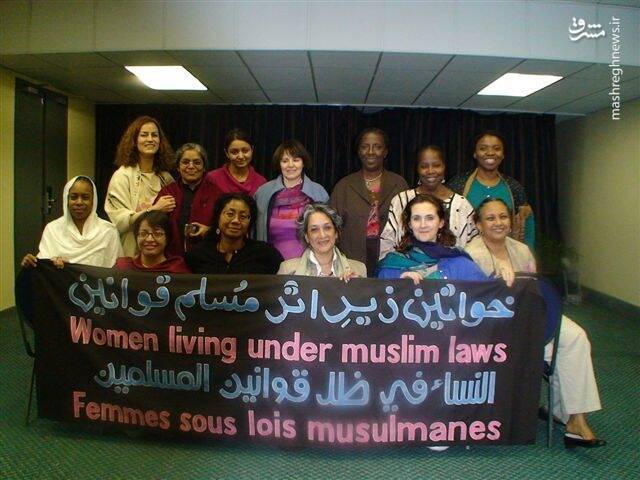 مشرق
mashreghnews.ir
خواتین زیر اثر مسلم قوانین
Women living under muslim laws
النساء في ظل قوانين المسلمين
Femmes sous lois musulmanes